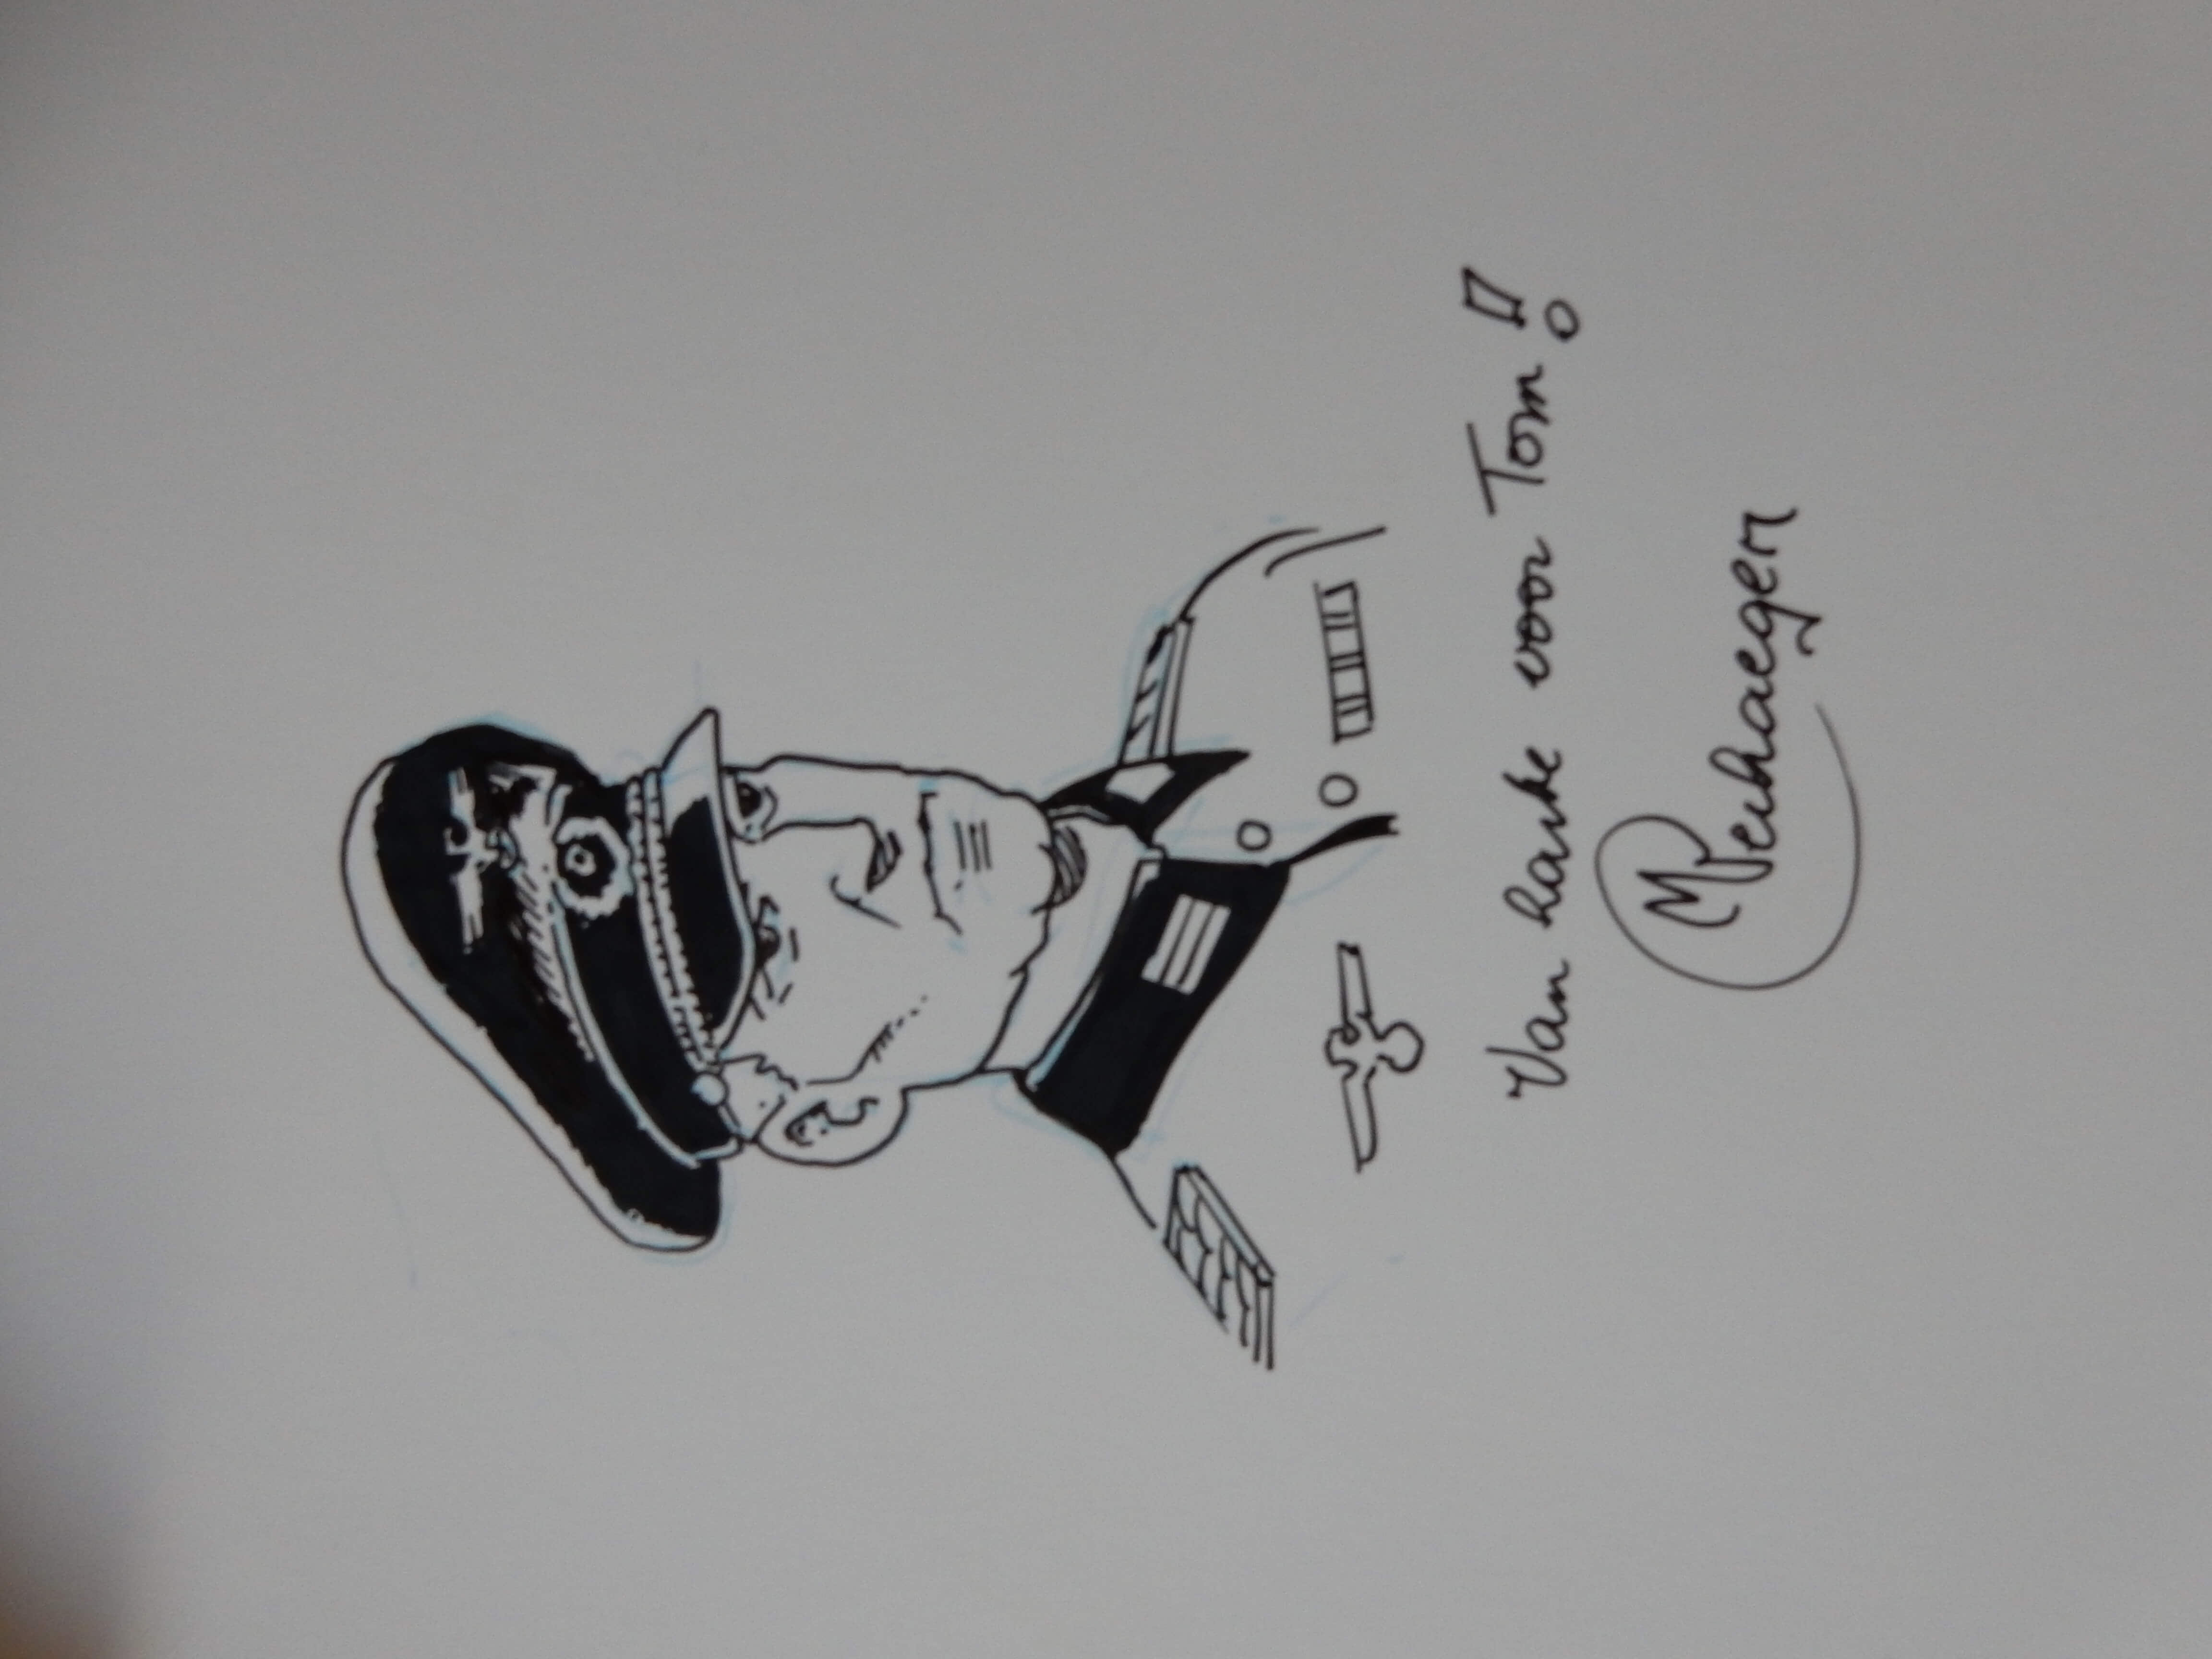 Van harte voor Tom!
MVerhaegen